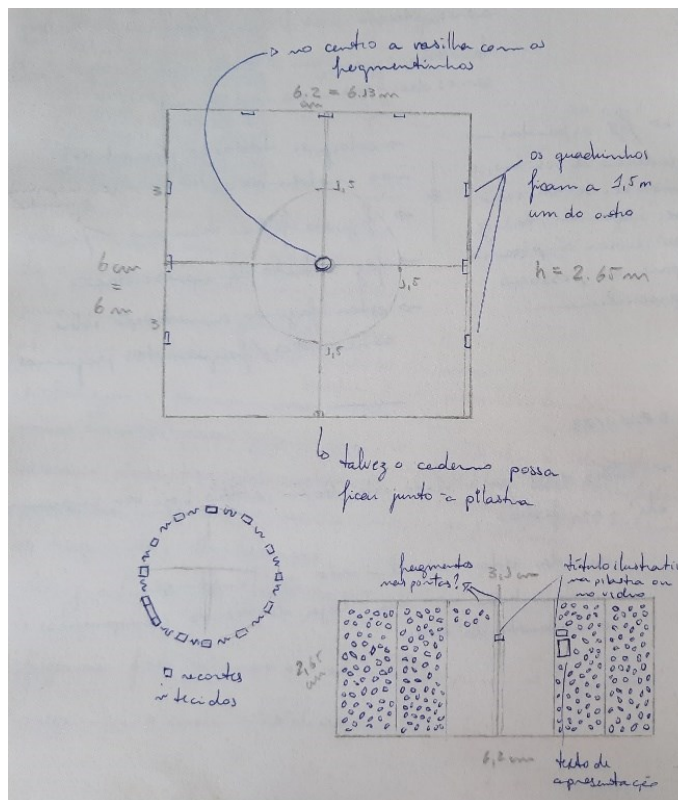 no centro a vasilha com os
fragmentinhos
6.2 = 6.13 m
cm
1,5
3
os quadrinhos
ficam a 1,5 m
um do outro
6 cm
=
6 m
1,5
h = 2.65 m
3
1,5
talvez o caderno possa
ficar junto à pilastra
fragmentos
nas portas?
3,1 cm
título ilustrati
na pilastra ou
no vidro
2,65
cm
recortes
tecidos
6,2 cm
texto de
apresentação